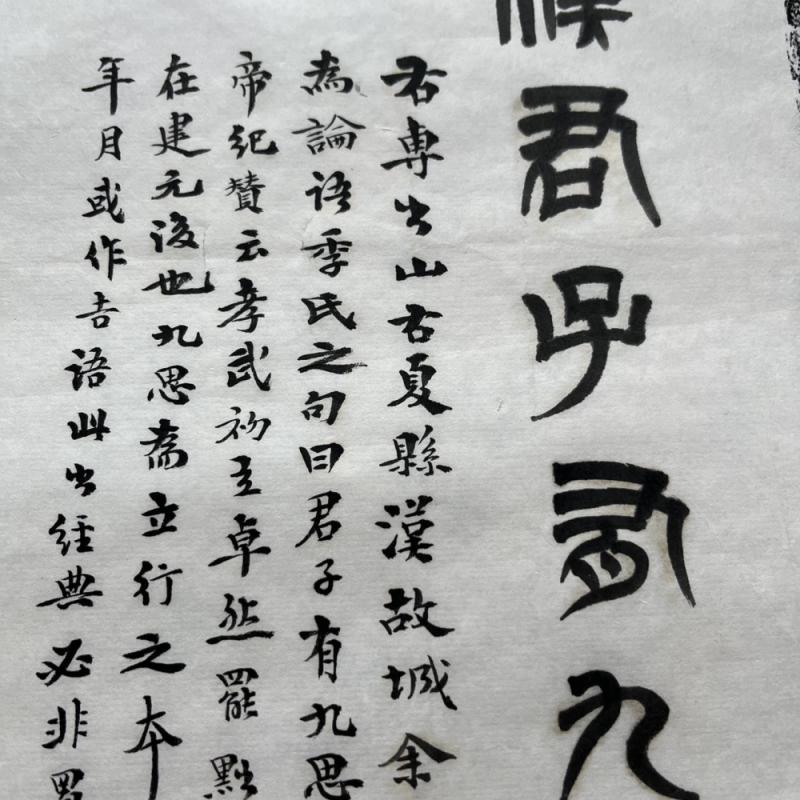 侯君子有九
右専出山右夏縣漢故城余
為論語季氏之句曰君子有九思
帝紀贊云孝武初立卓然罷黜
在建元後也九思為立行之本
年月或作吉語此出經典必非